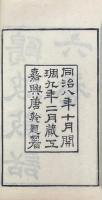 同治八年十月開
琱九年二月蕆工
嘉興唐翰題署